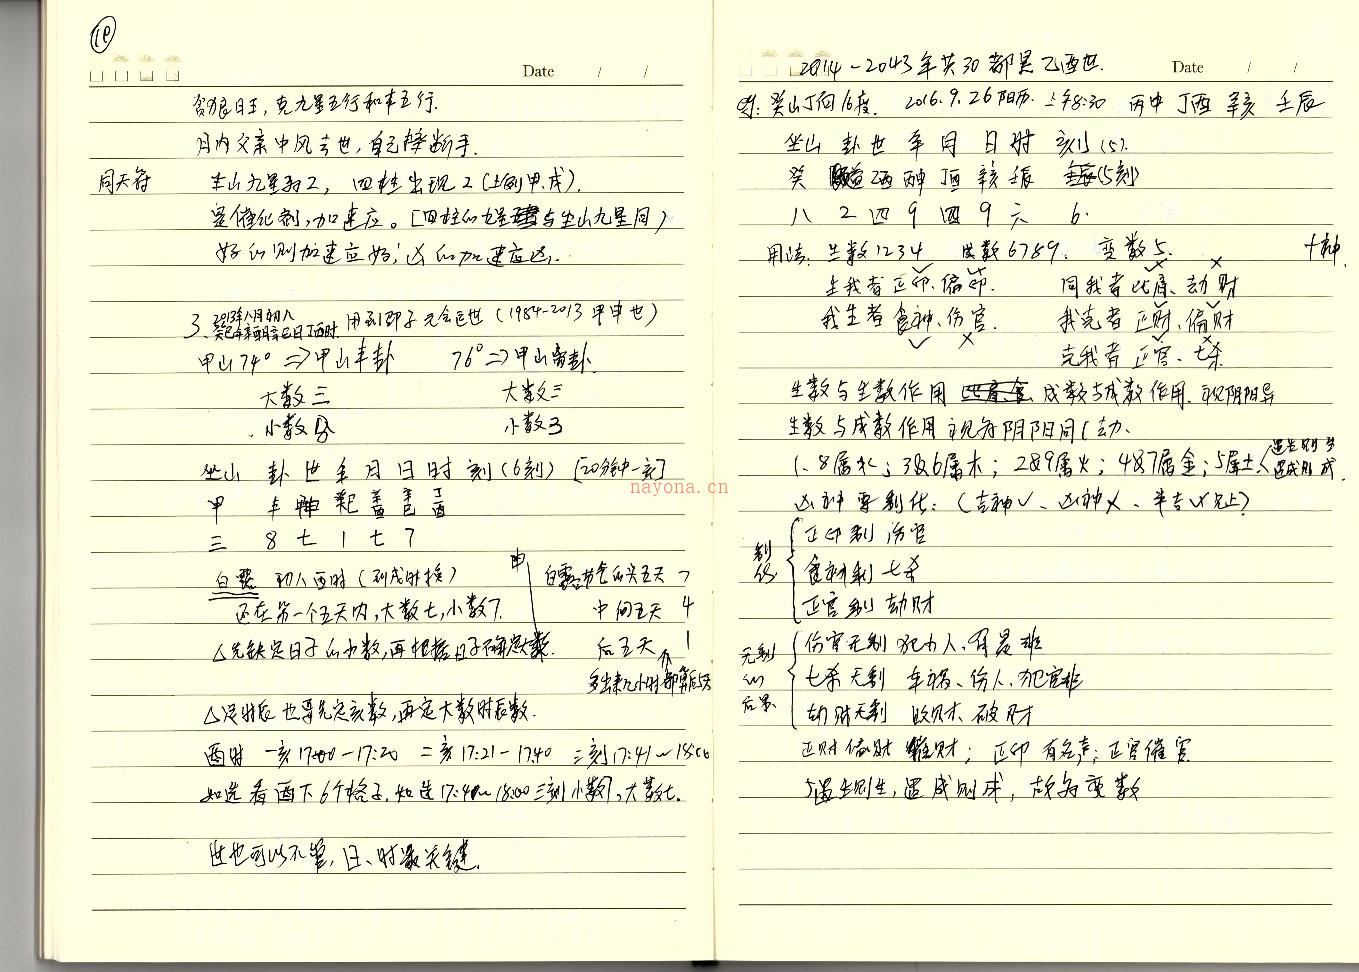 19
Date / /
贪狼日王，克九星五行和本五行.
月内父亲中风去世，自己摔断手.
同天符
坐山九星为2，四柱出现2（上例甲.戌）.
是催化剂，加速应。[四柱的九星与坐山九星同）
好的则加速应好；凶的加速应凶.
2013年八月初八
3、癸巳年辛酉月辛巳日丁酉时. 用到邵子元会运世（1984-2013 甲申世）
甲山74° => 甲山丰卦 76° => 甲山离卦.
大数三 大数三
小数8 小数3
坐山 卦 世 年 月 日 时 刻（6刻）[20分钟一刻]
甲 丰 甲申 癸巳 辛酉 辛巳 丁酉
三 8 七 1 七 7
白露 初八酉时（到戌时换）
还在第一个五天内，大数七，小数7.
白露节气的头五天 7
中间五天 4
后五天 1
多出来几小时都算后5天
△先缺定日子的小数，再根据日子确定大数.
△定时辰也要先定刻数，再定大数时辰数.
酉时 一刻17:00-17:20 二刻17:21-17:40 三刻17:41~18:00
如选看酉下6个格子，如选17:40~18:00三刻小数7，大数七.
世也可以不管，日、时最关键.
nayona.cn
2014-2043年共30都是乙酉世.
Date / /
例：癸山丁向16度. 2016.9.26阳历. 上午8:30 丙申 丁酉 辛亥 壬辰
坐山 卦 世 年 月 日 时 刻（5）.
癸 益 乙酉 丙申 丁酉 辛亥 壬辰 (5刻)
八 2 四 9 四 9 六 6.
用法：生数1234 成数6789. 变数5. 十神.
生我者正印.偏印. 同我者比肩、劫财
我生者食神、伤官. 我克者正财、偏财
克我者正官、七杀
生数与生数作用 成数与成数作用.视阴阳异
生数与成数作用视为阴阳同（劫.
1.8属水；3及6属木；2及9属火；4及7属金；5属土
遇生则生
遇成则成
凶神要制化：（吉神√、凶神×、半吉√×见上）
制化
正印制伤官
食神制七杀
正官制劫财
无制的后果
伤官无制 犯小人、有是非
七杀无制 车祸、伤人、犯官非
劫财无制 败财、破财
正财偏财 催财；正印 有名声；正官催官
5遇生则生，遇成则成，故为变数